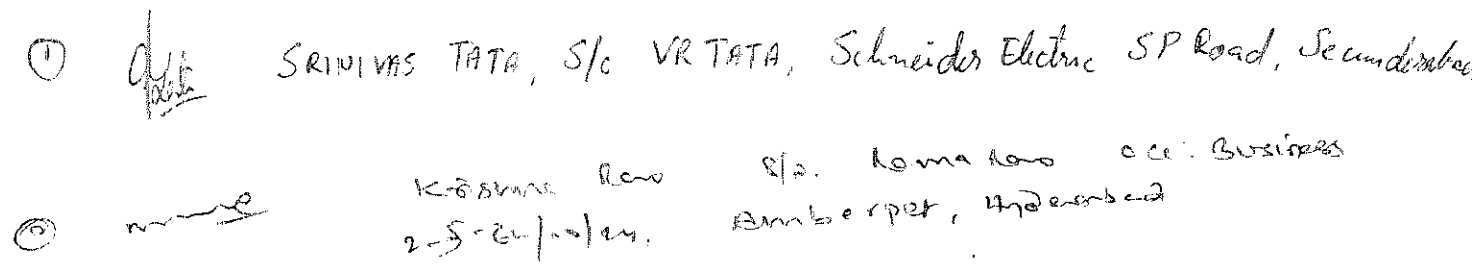 ① SRINIVAS TATA, S/o VR TATA, Schneider Electric SP Road, Secunderabad
Rao S/o. Rama Rao occ: Business
② Amberpet, Hyderabad